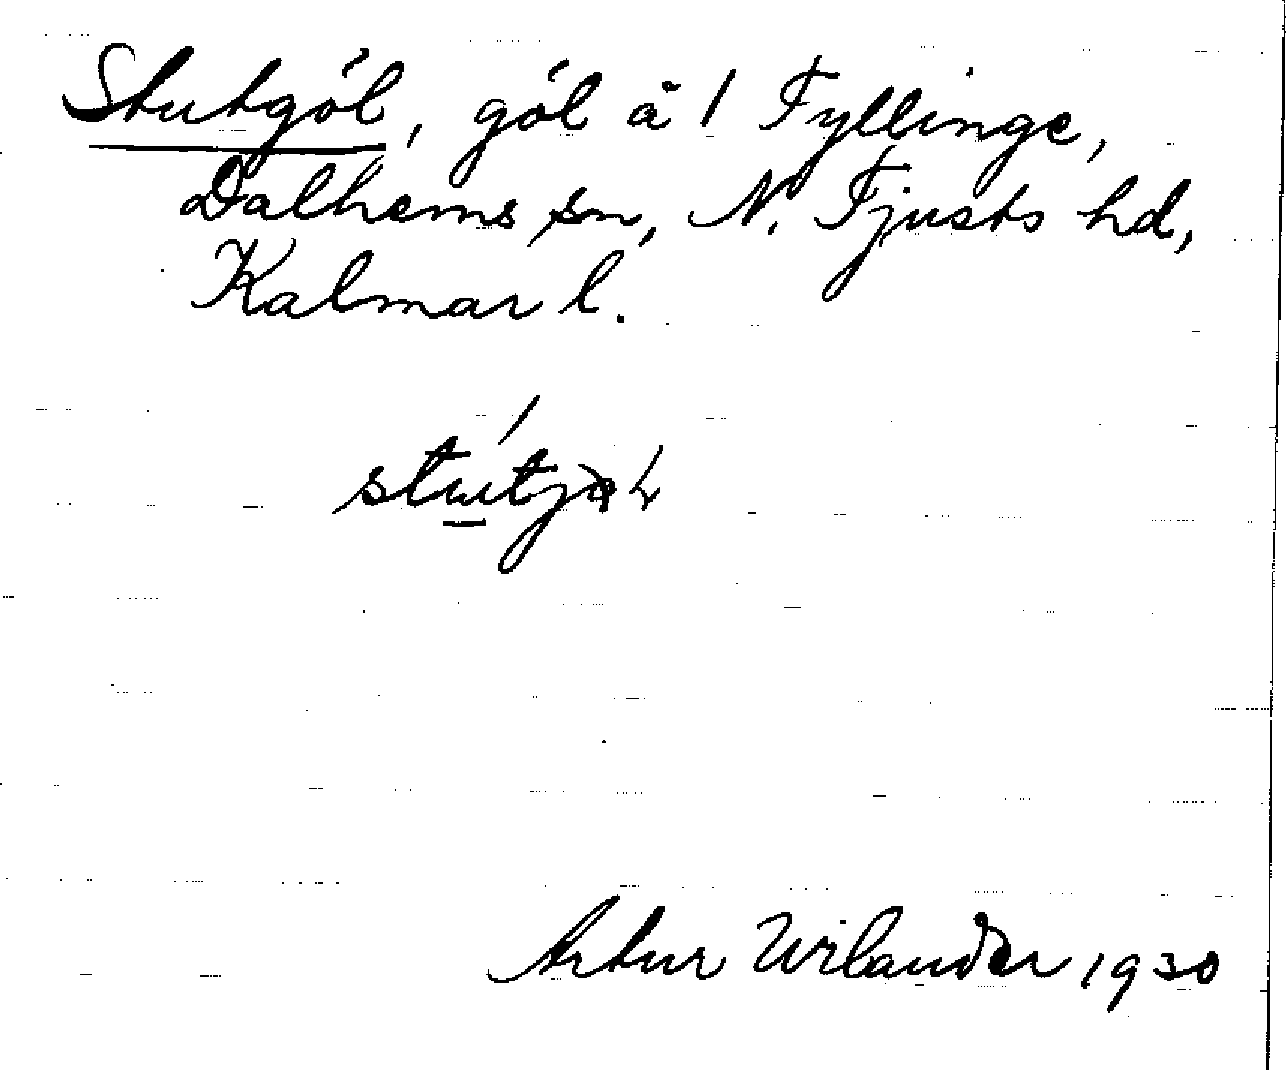 Stutgöl, göl å 1 Fyllinge,
Dalhems sn, N. Tjusts hd,
Kalmar l.
Artur Wilander 1930